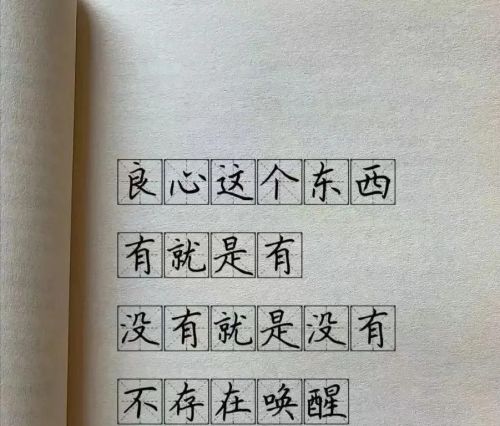 良心这个东西
有就是有
没有就是没有
不存在唤醒